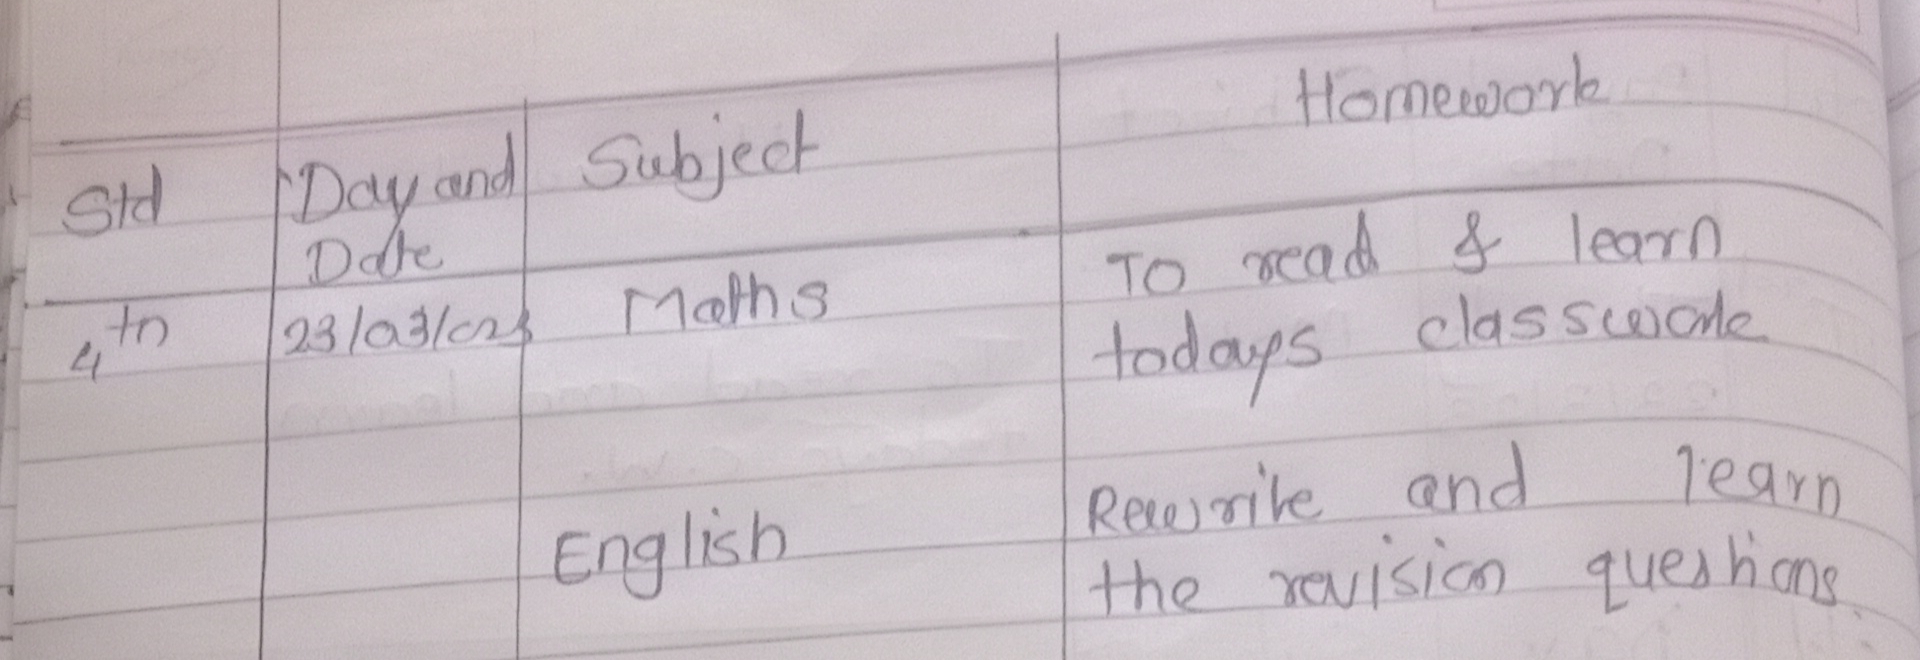 Std Day and Subject Homework
Date
4th 23/03/023 Maths To read & learn
todays classwork
English Rewrite and learn
the revision questions.